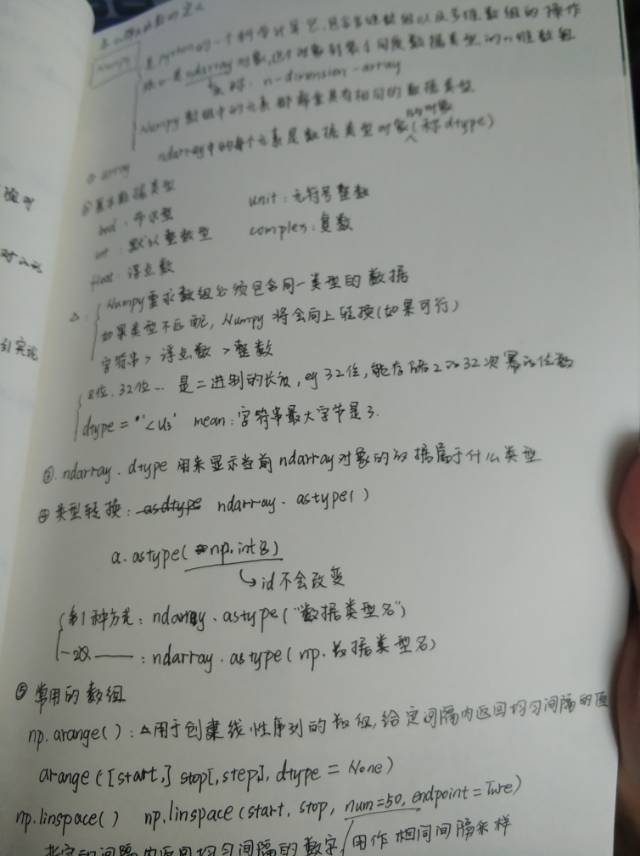 Numpy 是python的一个科学计算包,包含多维数组以及多维数组的操作
核心是ndarray对象,这个对象封装了同质数据类型的n维数组
n-dimension-array
Numpy数组中的元素都需要具有相同的数据类型
ndarray中的每个元素是数据类型对象(称dtype)
的对象
① array
②基本数据类型
bool:布尔型 unit:无符号整数
int:默认整数型 complex:复数
float:浮点数
△:Numpy要求数组必须包含同一类型的数据
如果类型不匹配,Numpy将会向上转换(如果可行)
字符串>浮点数>整数
8位,32位… 是二进制的长度,eg 32位,能存储2的32次幂的位数
dtype="<U3' mean:字符串最大字节是3.
③.ndarray.dtype 用来显示当前ndarray对象的数据属于什么类型
④类型转换:asdtype ndarray.astype()
a.astype(np.int8)
↳id不会改变
第1种方式:ndarray.astype("数据类型名")
-2——:ndarray.astype(np.数据类型名)
⑤常用的数组
np.arange():△用于创建线性序列的数组,给定间隔内返回均匀间隔的值
arange([start,] stop[,step], dtype=None)
np.linspace() np.linspace(start, stop, num=50, endpoint=Ture)
指定的间隔内返回均匀间隔的数字 用作相同间隔采样